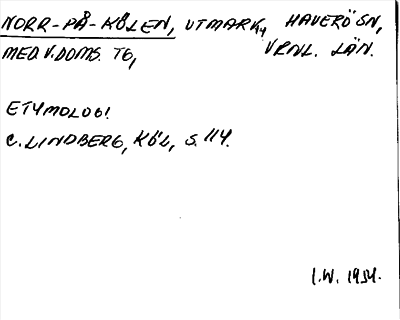 NORR-PÅ-KÖLEN, UTMARK, HAVERÖ SN,
MED.V.DOMS. TG, VRNL. LÄN.
ETYMOLOGI
C. LINDBERG, KÖL, S. 114.
I.W. 1934.